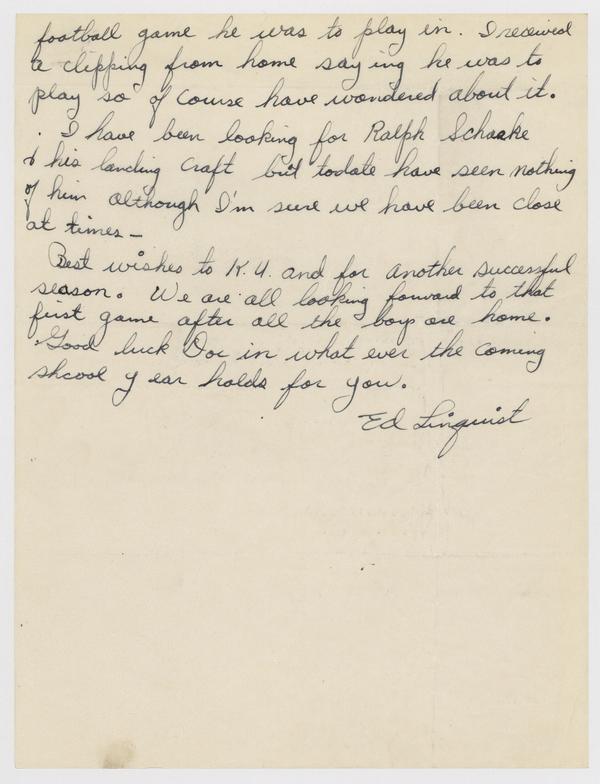 football game he was to play in. I received
a clipping from home saying he was to
play so of course have wondered about it.
. I have been looking for Ralph Schaake
& his landing craft but todate have seen nothing
of him although I'm sure we have been close
at times—
Best wishes to K.U. and for another successful
season. We are all looking forward to that
first game after all the boys are home.
Good luck Doc in what ever the coming
shcool year holds for you.
Ed Linquist